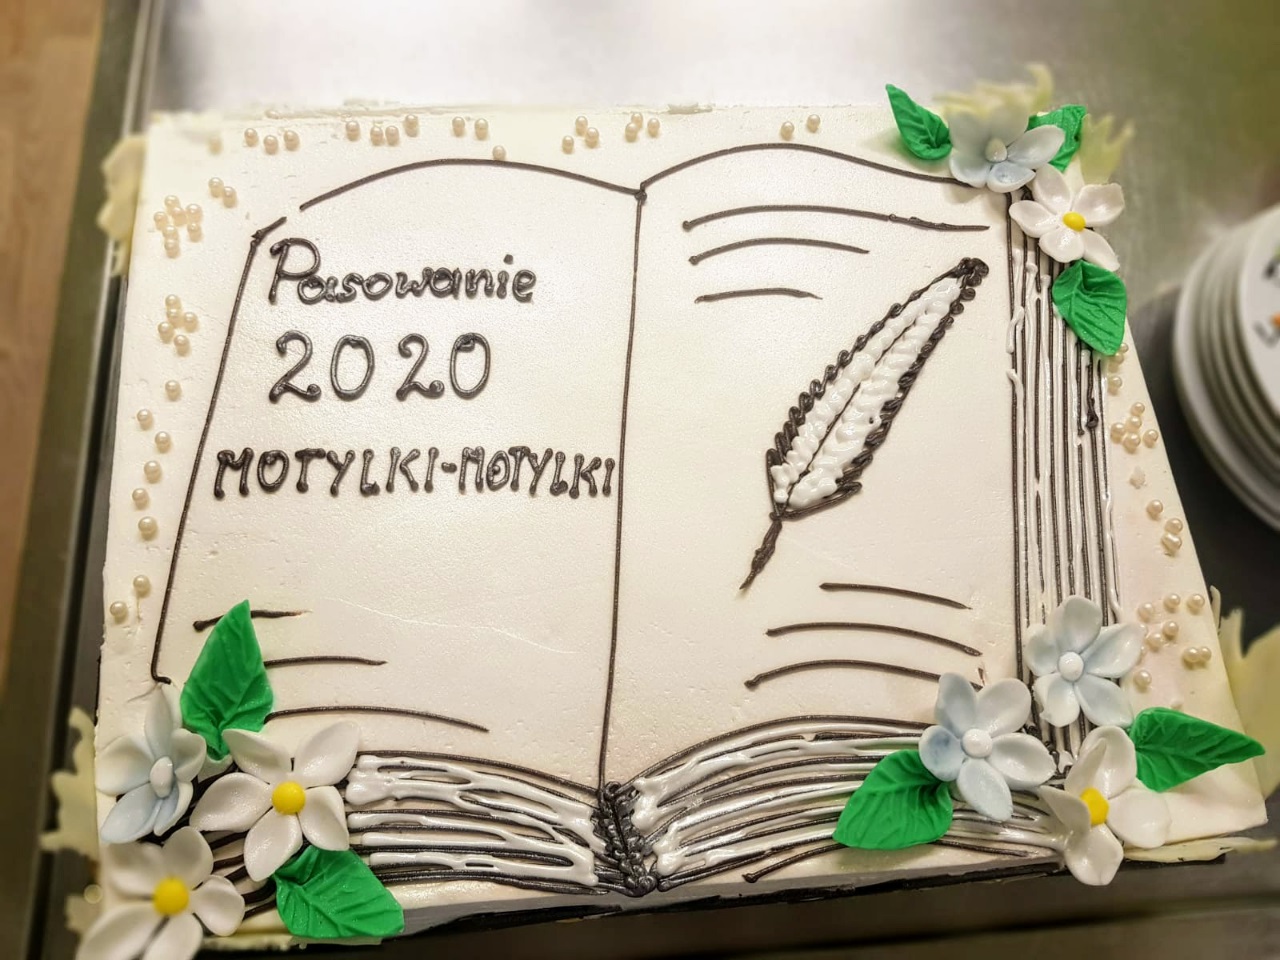 Pasowanie
2020
MOTYLKI-MOTYLKI